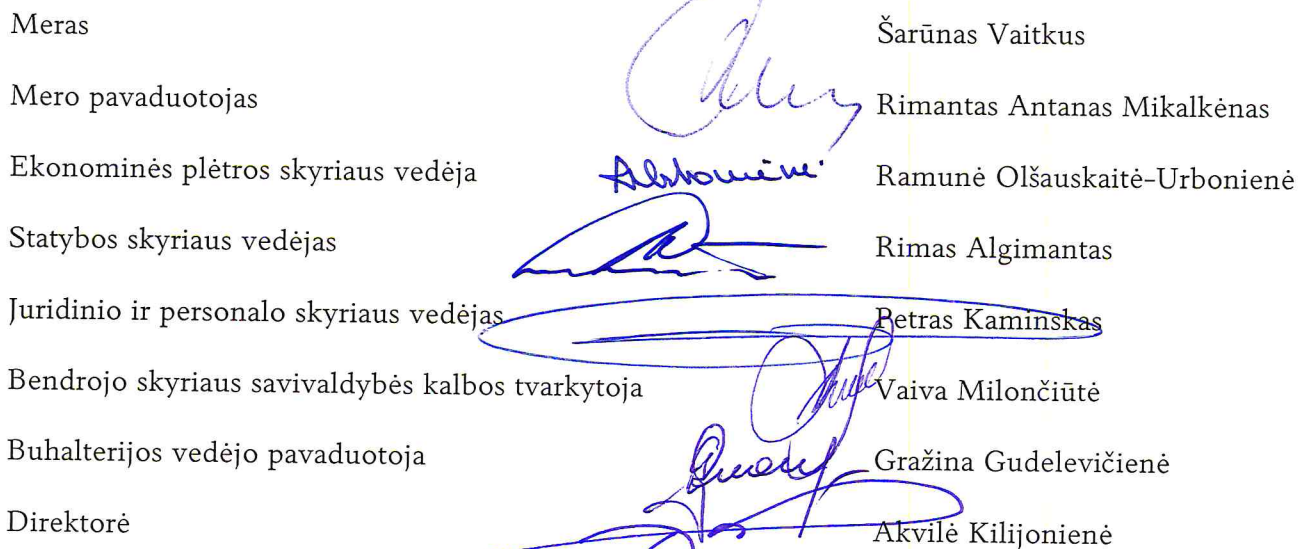 Meras Šarūnas Vaitkus
Mero pavaduotojas Rimantas Antanas Mikalkėnas
Ekonominės plėtros skyriaus vedėja Ramunė Olšauskaitė-Urbonienė
Statybos skyriaus vedėjas Rimas Algimantas
Juridinio ir personalo skyriaus vedėjas Petras Kaminskas
Bendrojo skyriaus savivaldybės kalbos tvarkytoja Vaiva Milončiūtė
Buhalterijos vedėjo pavaduotoja Gražina Gudelevičienė
Direktorė Akvilė Kilijonienė